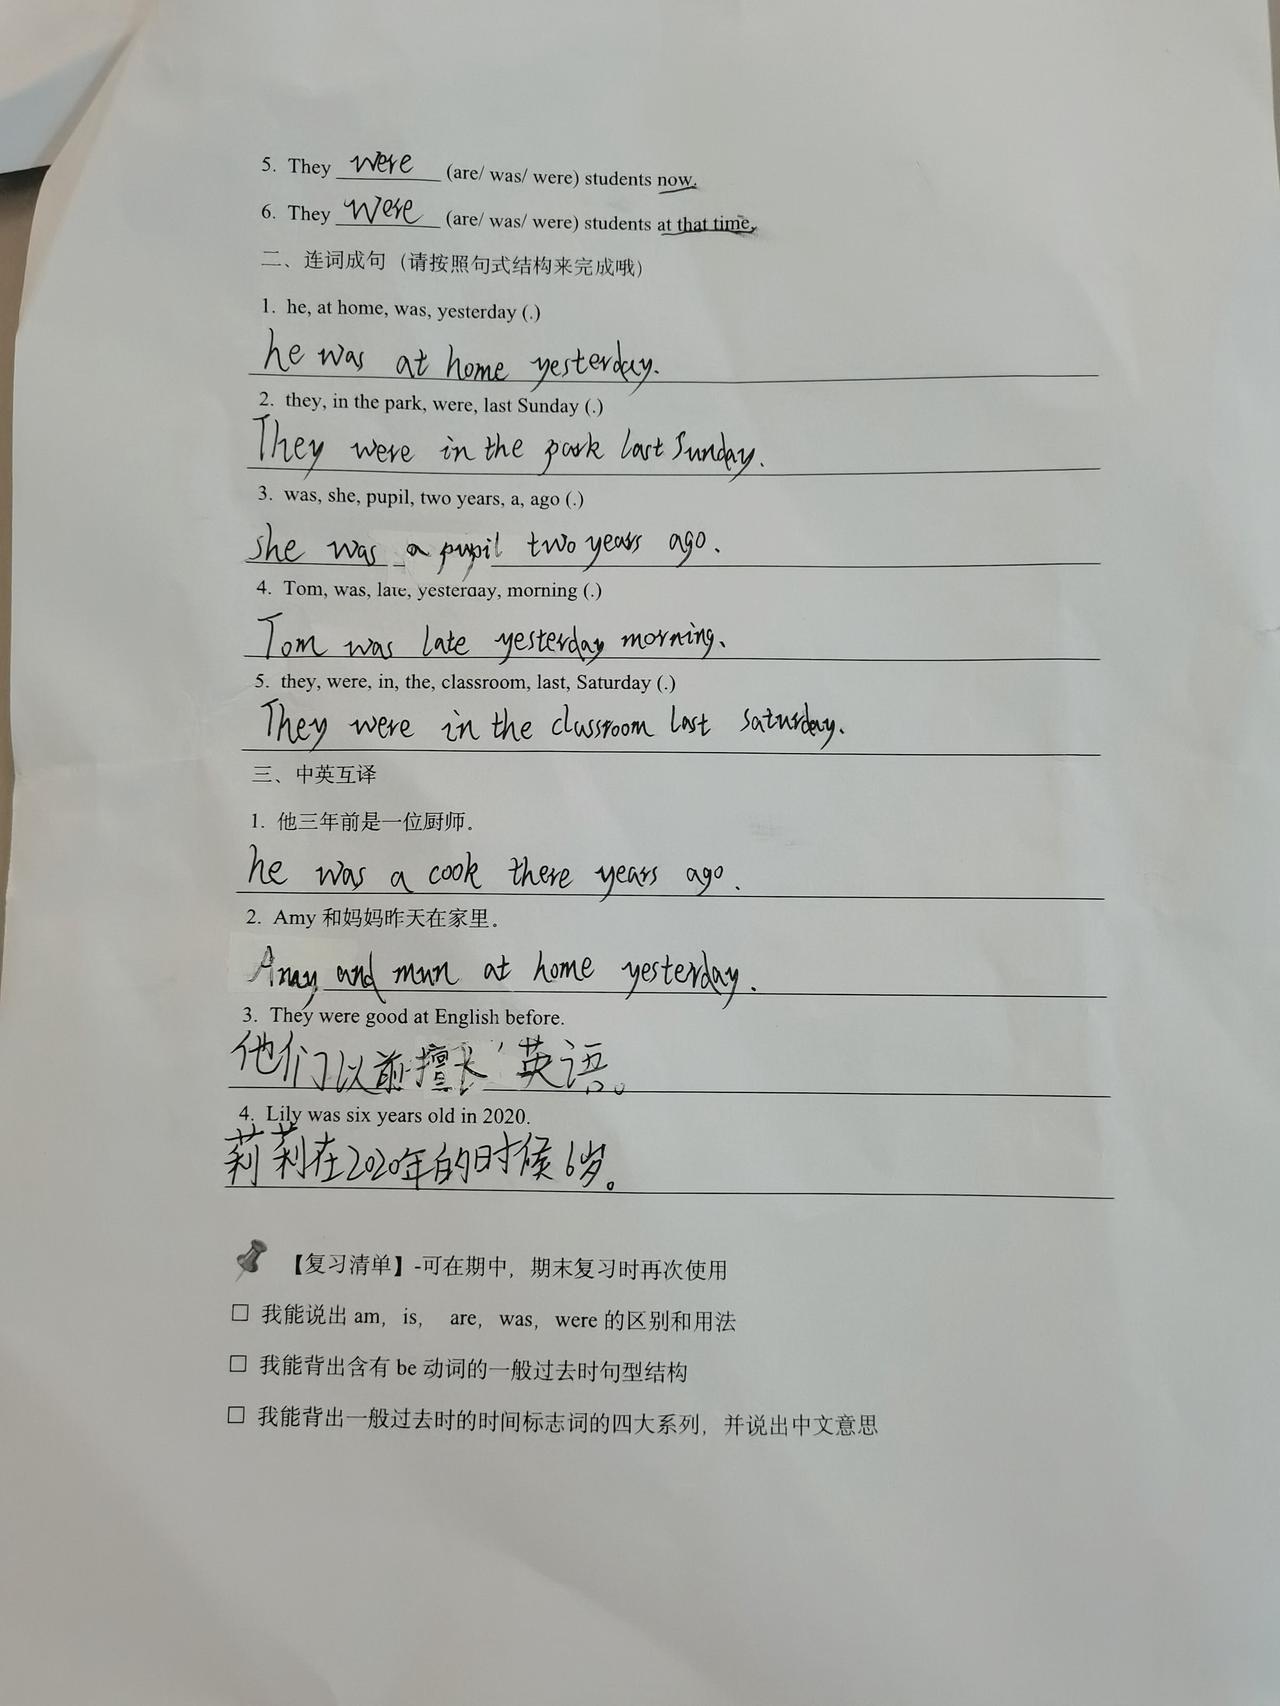 5. They were (are/ was/ were) students now.
6. They were (are/ was/ were) students at that time.
二、连词成句（请按照句式结构来完成哦）
1. he, at home, was, yesterday (.)
he was at home yesterday.
2. they, in the park, were, last Sunday (.)
They were in the park last Sunday.
3. was, she, pupil, two years, a, ago (.)
she was a pupil two years ago.
4. Tom, was, late, yesterday, morning (.)
Tom was late yesterday morning.
5. they, were, in, the, classroom, last, Saturday (.)
They were in the classroom last saturday.
三、中英互译
1. 他三年前是一位厨师.
he was a cook there years ago.
2. Amy 和妈妈昨天在家里.
Amy and mun at home yesterday.
3. They were good at English before.
他们以前擅长英语。
4. Lily was six years old in 2020.
莉莉在2020年的时候6岁。
【复习清单】-可在期中，期末复习时再次使用
□ 我能说出 am， is， are，was，were 的区别和用法
□ 我能背出含有 be 动词的一般过去时句型结构
□ 我能背出一般过去时的时间标志词的四大系列，并说出中文意思